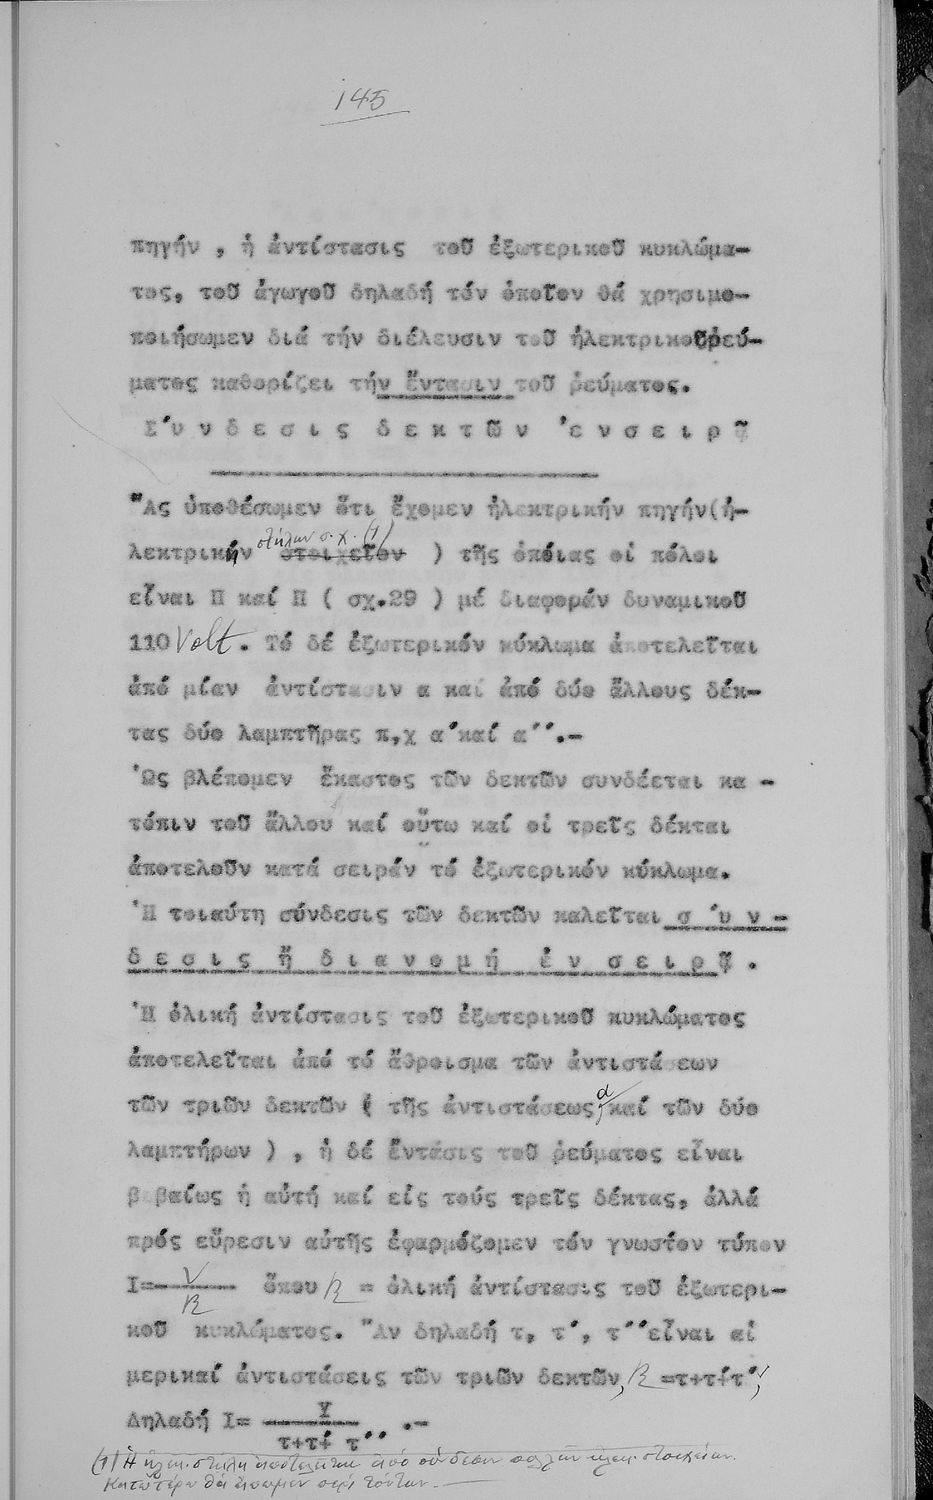 145
πηγήν , ἡ ἀντίστασις τοῦ ἐξωτερικοῦ κυκλώμα-
τος, τοῦ ἀγωγοῦ δηλαδή τόν ὁποῖον θά χρησιμο-
ποιήσωμεν διά τήν διέλευσιν τοῦ ἠλεκτρικοῦρεύ-
ματος καθορίζει τήν ἔντασιν τοῦ ῥεύματος.
Σ'υ ν δ ε σ ι ς δ ε κ τ ῶ ν 'ε ν σ ε ι ρ ᾷ
"Ας ὑποθέσωμεν ὅτι ἔχομεν ἠλεκτρικήν πηγήν(ἠ-
λεκτρικήν στήλην σ.χ. (1) στοιχεῖον ) τῆς ὁπόιας οἱ πόλοι
εἶναι Π καί Π ( σχ.29 ) μέ διαφοράν δυναμικοῦ
110 Volt. Τό δέ ἐξωτερικόν κύκλωμα ἀποτελεῖται
ἀπό μίαν ἀντίστασιν α καί ἀπό δύο ἄλλους δέκ-
τας δύο λαμπτῆρας π,χ α΄καί α΄΄.-
Ὡς βλέπομεν ἕκαστος τῶν δεκτῶν συνδέεται κα -
τόπιν τοῦ ἄλλου καί οὕτω καί οἱ τρεῖς δέκται
ἀποτελοῦν κατά σειράν τό ἐξωτερικόν κύκλωμα.
Ἡ τοιαύτη σύνδεσις τῶν δεκτῶν καλεῖται σ 'υ ν -
δ ε σ ι ς ἤ δ ι α ν ο μ ή ἐ ν σ ε ι ρ ᾷ .
Ἡ ὁλική ἀντίστασις τοῦ ἐξωτερικοῦ κυκλώματος
ἀποτελεῖται ἀπό τό ἄθροισμα τῶν ἀντιστάσεων
τῶν τριῶν δεκτῶν ( τῆς ἀντιστάσεως α καί τῶν δύο
λαμπτήρων ) , ἡ δέ ἔντάσις τοῦ ῥεύματος εἶναι
βεβαίως ἡ αὐτή καί εἰς τούς τρεῖς δέκτας, ἀλλά
πρός εὕρεσιν αὐτῆς ἐφαρμόζομεν τόν γνωστόν τύπον
I= V/R ὅπου R = ὁλική ἀντίστασις τοῦ ἐξωτερι-
κοῦ κυκλώματος. Ἄν δηλαδή τ, τ΄, τ΄΄εἶναι αἱ
μερικαί ἀντιστάσεις τῶν τριῶν δεκτῶν, R =τ+τ΄+τ΄΄,
Δηλαδή I= V/τ+τ΄+ τ΄΄ .-
(1) Ἡ ἠλεκ. στήλη ἀποτελεῖται ἀπό σύνδεσιν πολλῶν ἠλεκ. στοιχείων.
Κατωτέρω θά εἴπωμεν περί τούτων.-